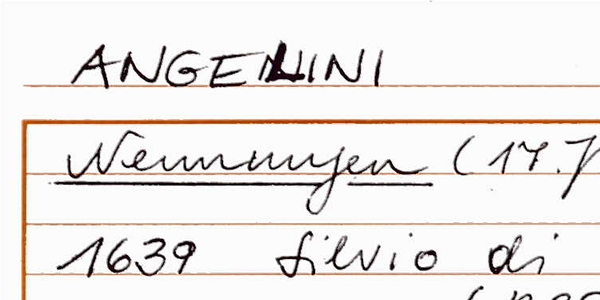 ANGELINI
Nennungen (17.J
1639 Silvio di